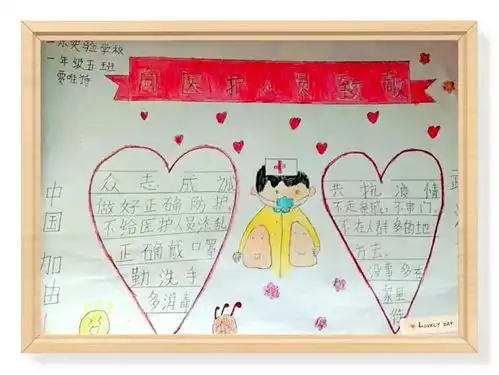 一年级五班
向医护人员致敬
众志成城
做好正确防护,
不给医护人员添乱
正确戴口罩
勤洗手
多消毒
共抗疫情
不走亲戚,不串门,
不在人群多的地
方去。
没事多在
家里
中国加油
LOVELY DAY